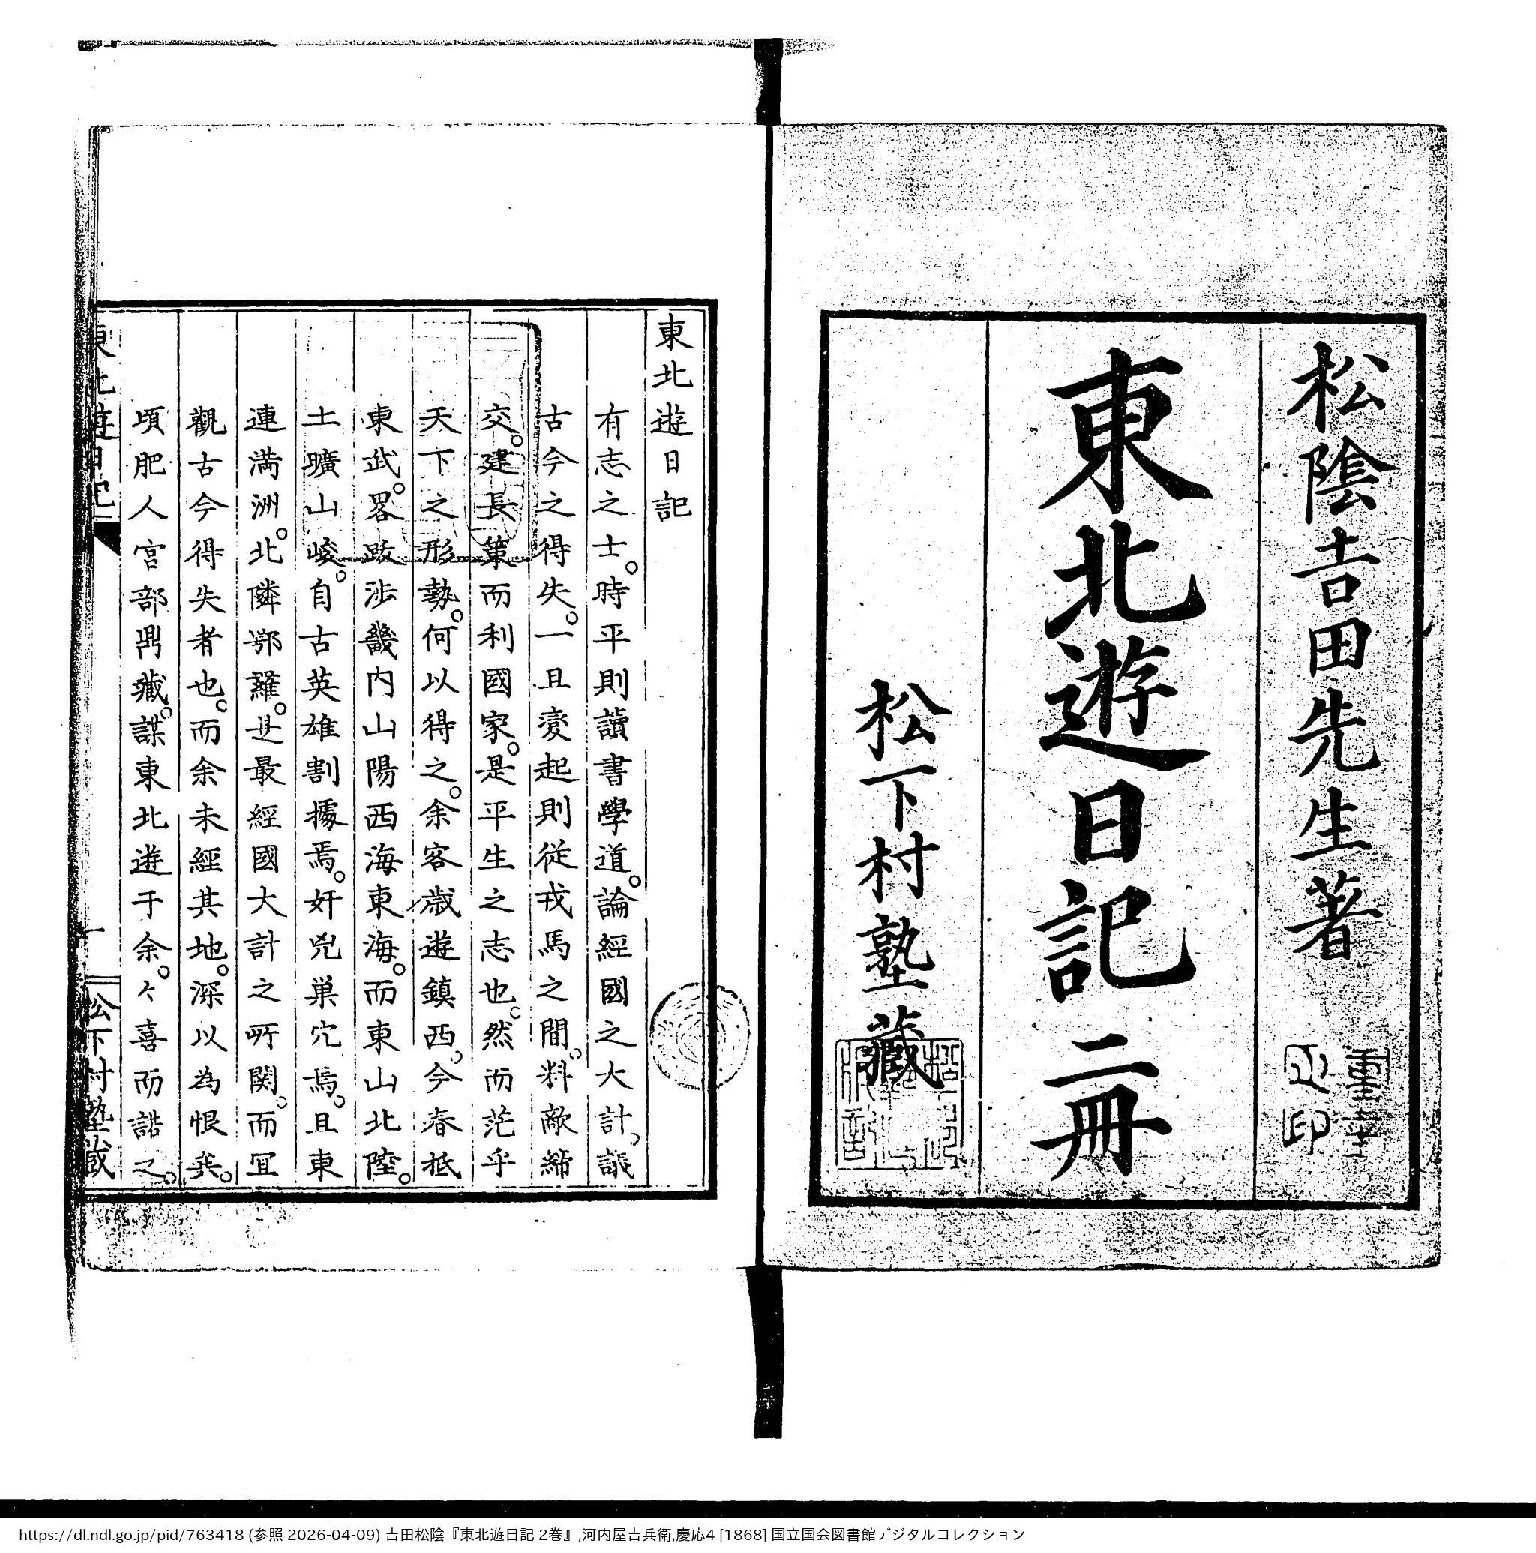 松陰吉田先生著
東北遊日記 二冊
松下村塾藏
東北遊日記
有志之士。時平則讀書學道。論經國之大計、議
古今之得失。一旦變起則從戎馬之間。料敵締
交。建長策而利國家。是平生之志也。然而茫乎
天下之形勢。何以得之。余客歳遊鎮西、今春抵
東武。畧跋涉畿内山陽西海東海。而東山北陸。
土曠山峻。自古英雄割據焉。奸兇巢穴焉。且東
連満洲。北隣鄂羅。是最經國大計之所関。而冝
觀古今得失者也。而余未經其地。深以為恨矣。
頃肥人宮部鼎藏。謀東北遊于余。々喜而諾之。
東北遊日記
一
松下村塾藏
https://dl.ndl.go.jp/pid/763418 (参照 2026-04-09) 吉田松陰『東北遊日記 2巻』,河内屋吉兵衛,慶応4 [1868] 国立国会図書館デジタルコレクション